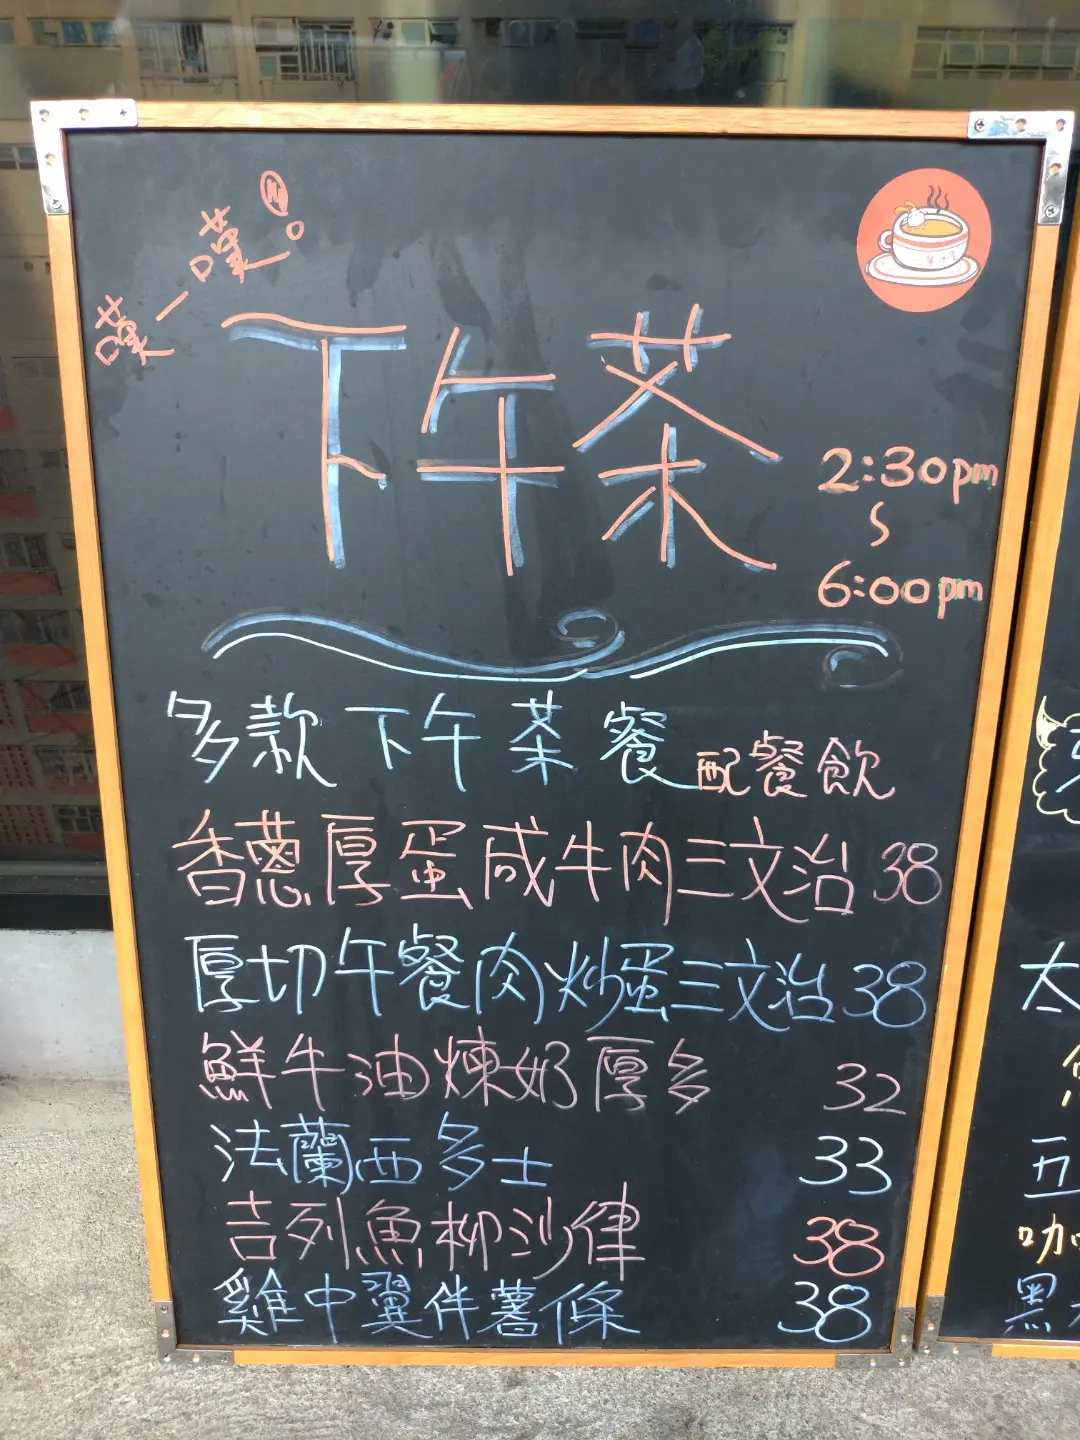 嘆一嘆!
下午茶
2:30pm
~
6:00pm
多款下午茶餐 配餐飲
香蔥厚蛋咸牛肉三文治 38
厚切午餐肉炒蛋三文治 38
鮮牛油煉奶厚多 32
法蘭西多士 33
吉列魚柳沙律 38
雞中翼伴薯條 38
太
五
咖
黑